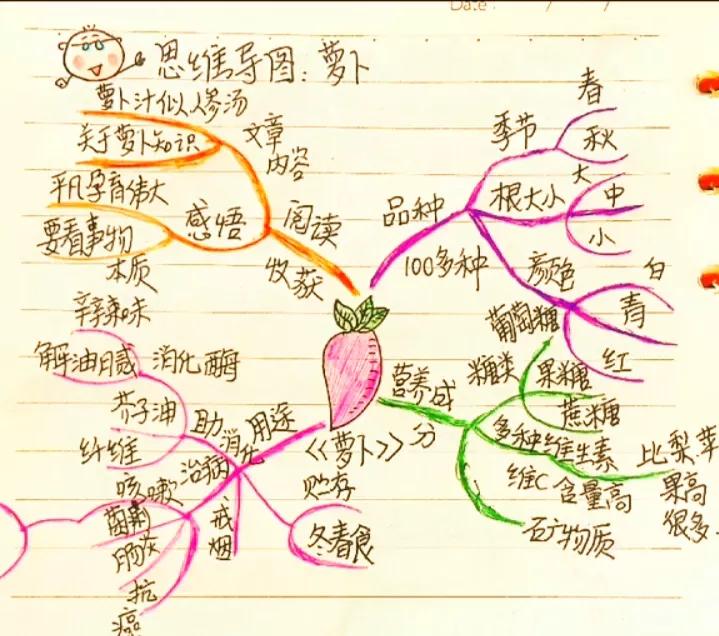 Date: / /
思维导图：萝卜
萝卜汁似人参汤
关于萝卜知识
文章
内容
平凡孕育伟大
要看事物
本质
感悟
阅读
收获
品种
100多种
季节
春
秋
根大小
大
中
小
颜色
白
青
红
营养成
分
糖类
葡萄糖
果糖
蔗糖
多种维生素
维C 含量高
比梨、苹
果高
很多
矿物质
《萝卜》
用途
助
消化
辛辣味
解油腻
消化酶
芥子油
纤维
治病
咳嗽
菌痢
肠炎
抗
癌
戒
烟
贮存
冬春食